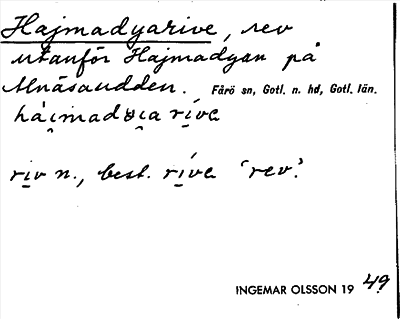 Hajmadyarive, rev
utanför Hajmadyan på
Ulnäsaudden. Fårö sn, Gotl. n. hd, Gotl. län.
rịv n., best. rị́va ‘rev’.
INGEMAR OLSSON 19 49